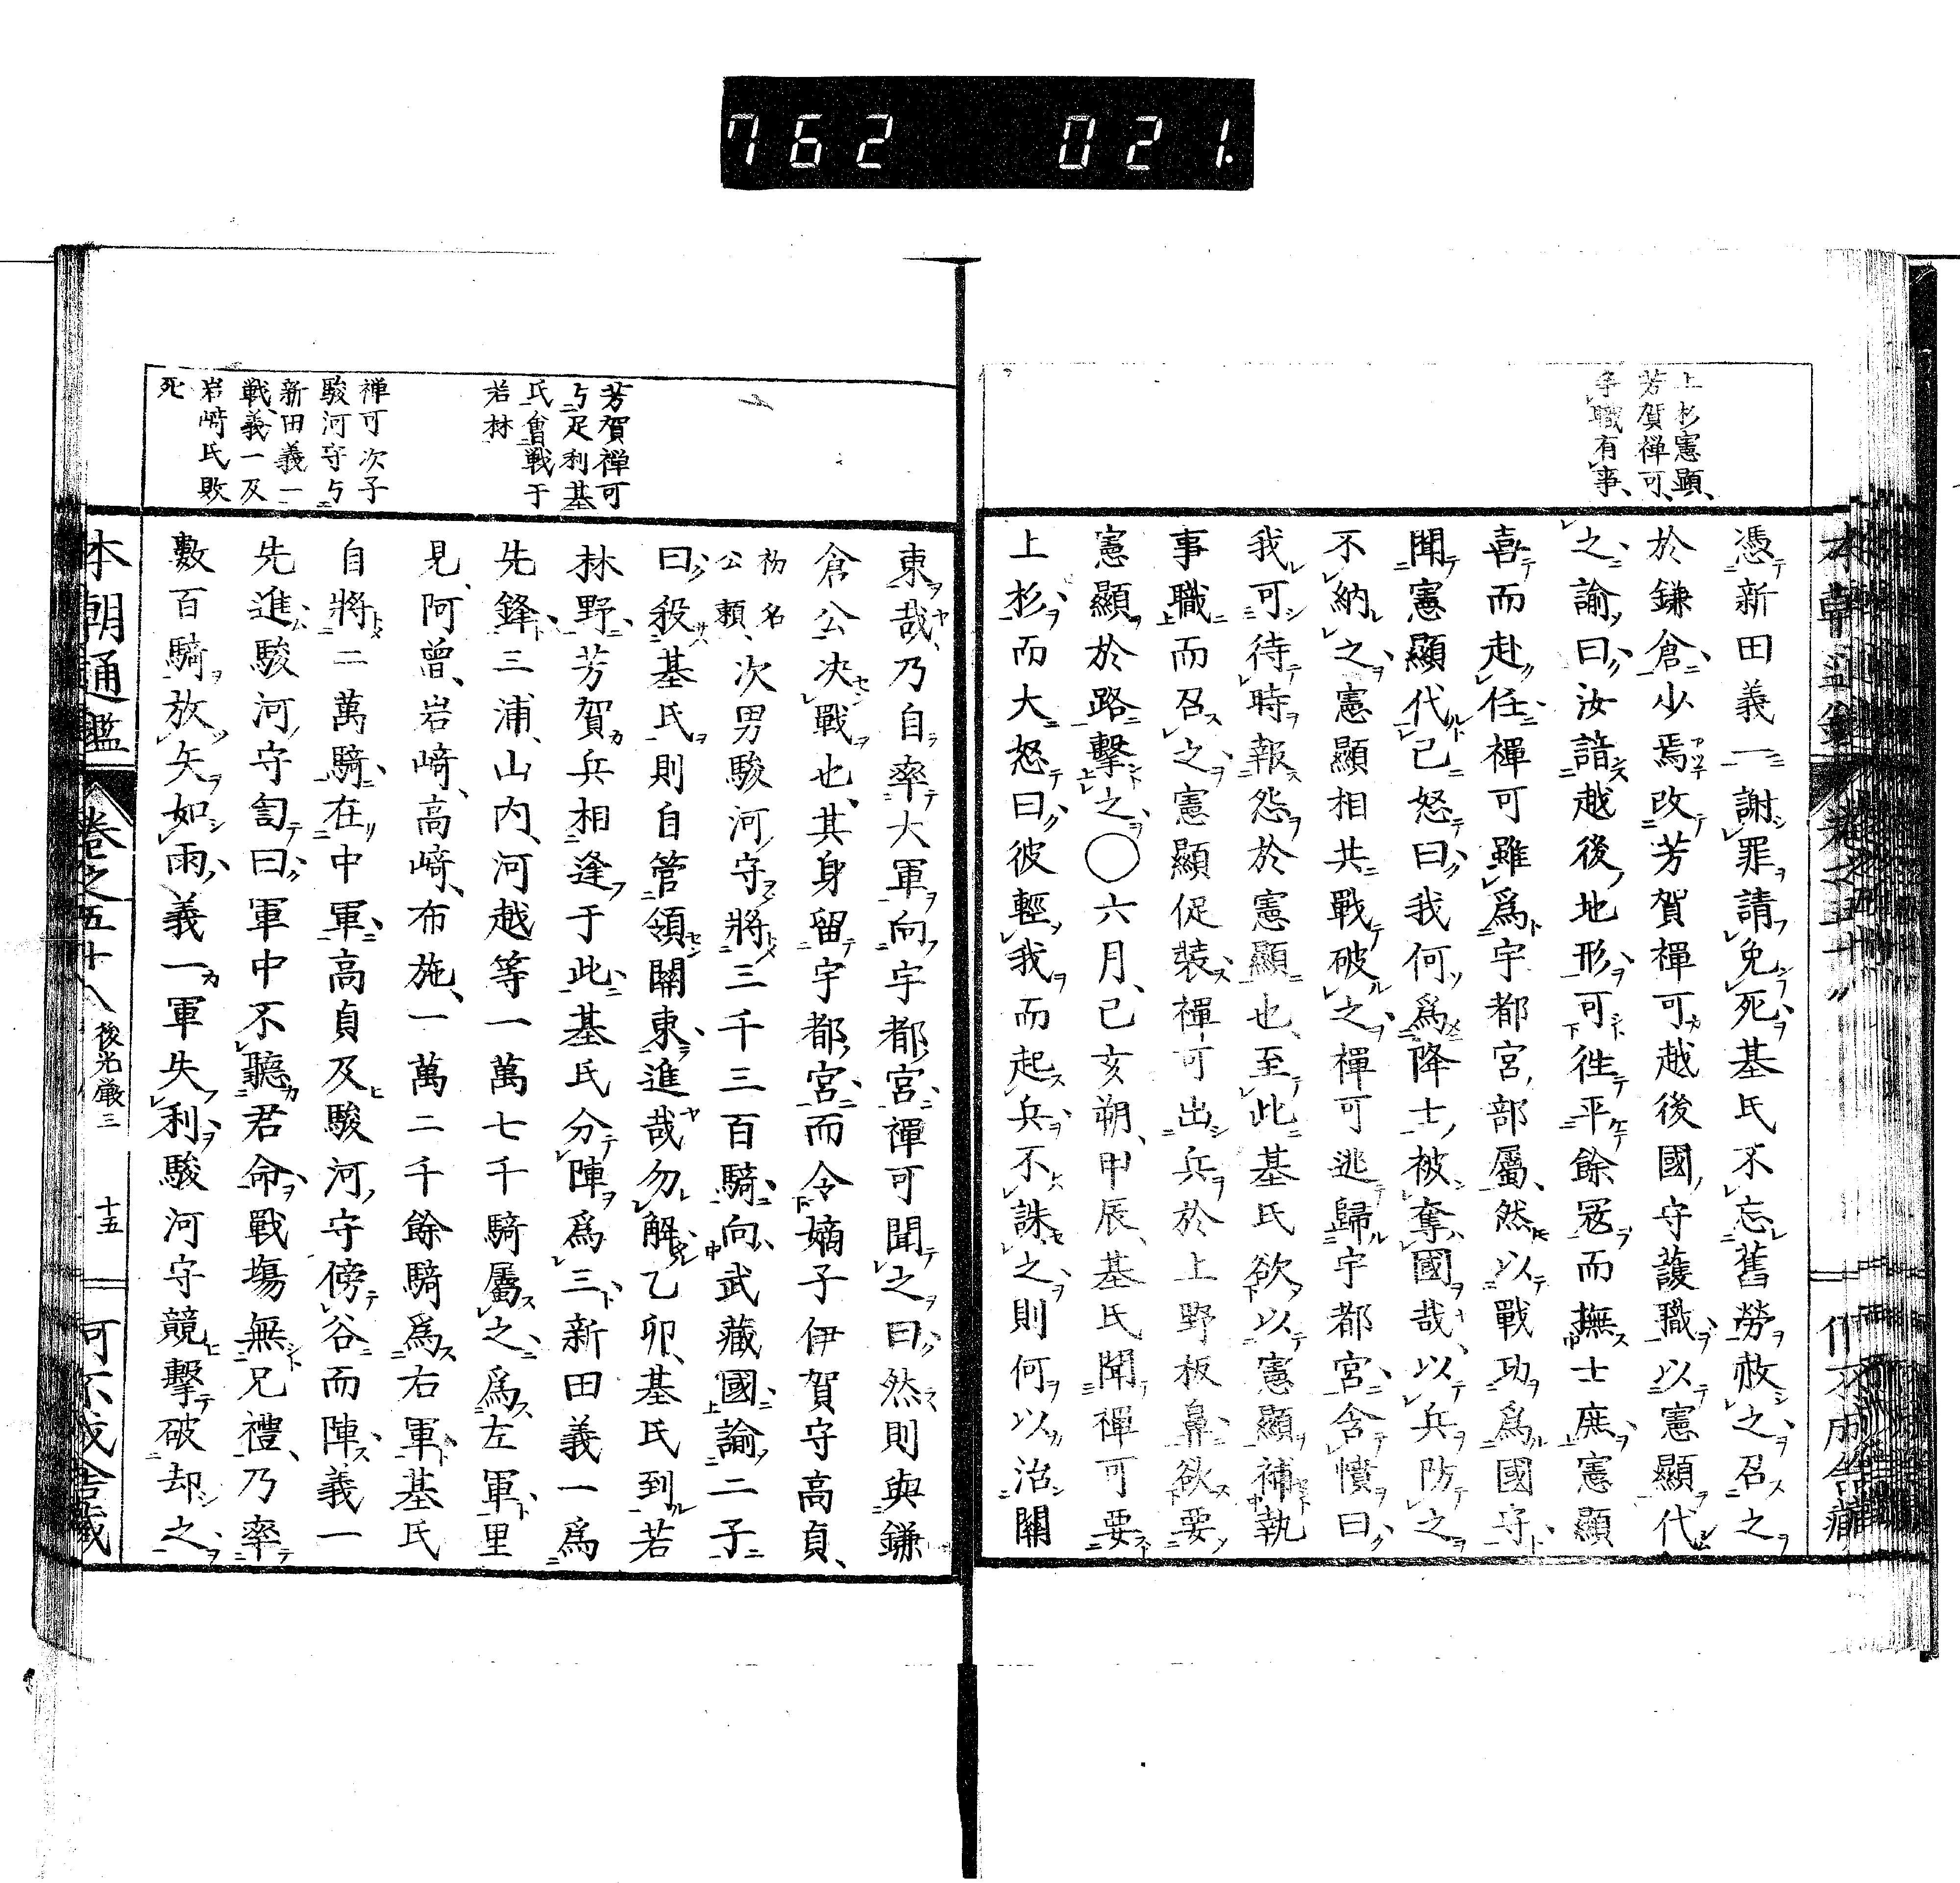 762 021.
上杉憲顯、
芳賀禪可、
爭職有事、
憑新田義一謝罪請免死基氏不忘舊勞赦之召之
於鎌倉少焉改芳賀禪可越後國守護職以憲顯代
之諭曰汝諳越後地形可徃平餘寇而撫士庶憲顯
喜而赴任禪可雖爲宇都宮部屬然以戰功爲國守
聞憲顯代己怒曰我何爲降士被奪國哉以兵防之
不納之憲顯相共戰破之禪可逃歸宇都宮含憤曰
我可待時報怨於憲顯也、至此基氏欲以憲顯補執
事職而召之憲顯促裝禪可出兵於上野板鼻欲要
憲顯於路擊之○六月、己亥朔、甲辰、基氏聞禪可要
上杉而大怒曰彼輕我而起兵不誅之則何以治關
芳賀禅可
与足利基
氏會戰于
若林
禅可次子
駿河守与
新田義一
戰、義一及
岩﨑氏敗
死
東哉、乃自率大軍向宇都宮禪可聞之曰然則與鎌
倉公决戰也、其身留宇都宮而令嫡子伊賀守高貞、
初名公頼、次男駿河守將三千三百騎向武藏國諭二子
曰殺基氏則自管領關東進哉勿解乙卯、基氏到若
林野、芳賀兵相逢于此基氏分陣爲三新田義一爲
先鋒三浦、山内、河越等一萬七千騎屬之爲左軍里
見、阿曾、岩﨑、高﨑、布施、一萬二千餘騎爲右軍基氏
自將二萬騎在中軍高貞及駿河守傍谷而陣義一
先進駿河守訇曰軍中不聽君命戰塲無兄禮、乃率
數百騎放矢如雨義一軍失利駿河守競擊破却之
本朝通鑑 卷之五十八 後光厳三 十五 可不成舎藏